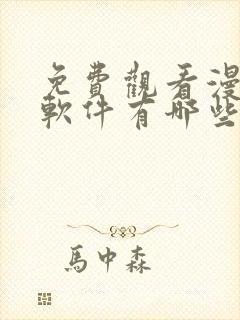 免費觀看漫
軟件有哪些
馬中森